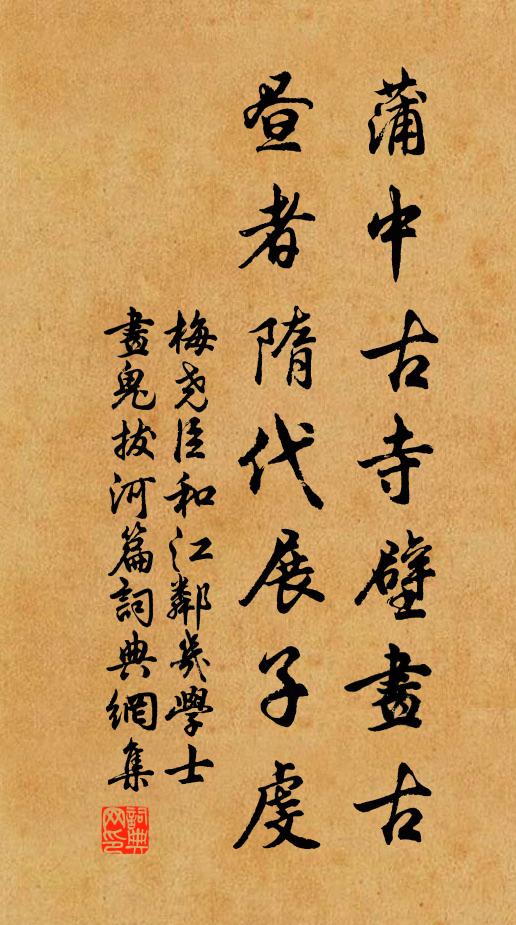 蒲中古寺壁畫古
昼者隋代展子虔
梅尧臣和江鄰幾學士
畫鬼拔河篇詞典網集
詞典
网印